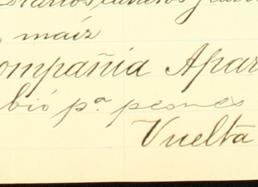 maíz
ompañía Apar
bió p.ª pesues
Vuelta